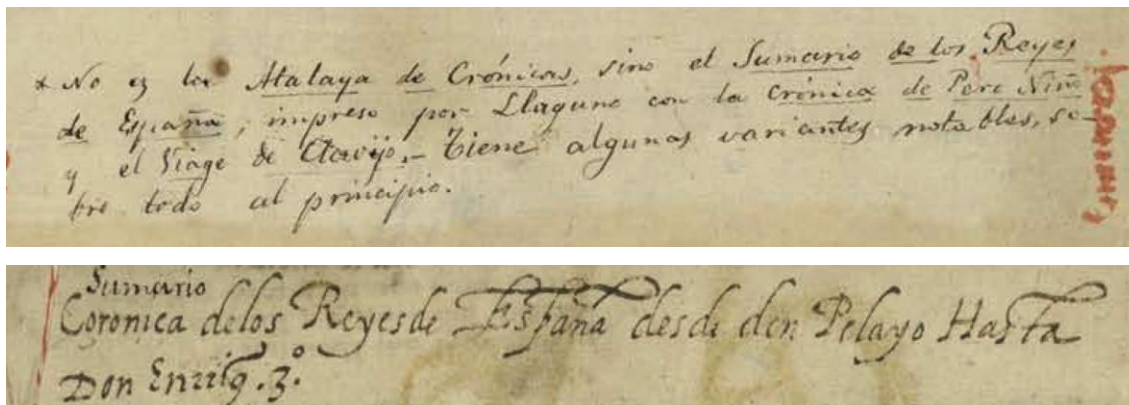 x No es la Atalaya de Crónicas, sino el Sumario de los Reyes
de España, impreso por Llaguno con la Crónica de Pero Niño
y el Viage de Clavijo.- Tiene algunas variantes notables, so-
bre todo al principio.
Sumario
Coronica delos Reyes de España desde don Pelayo Hasta
Don Enriq. 3.º